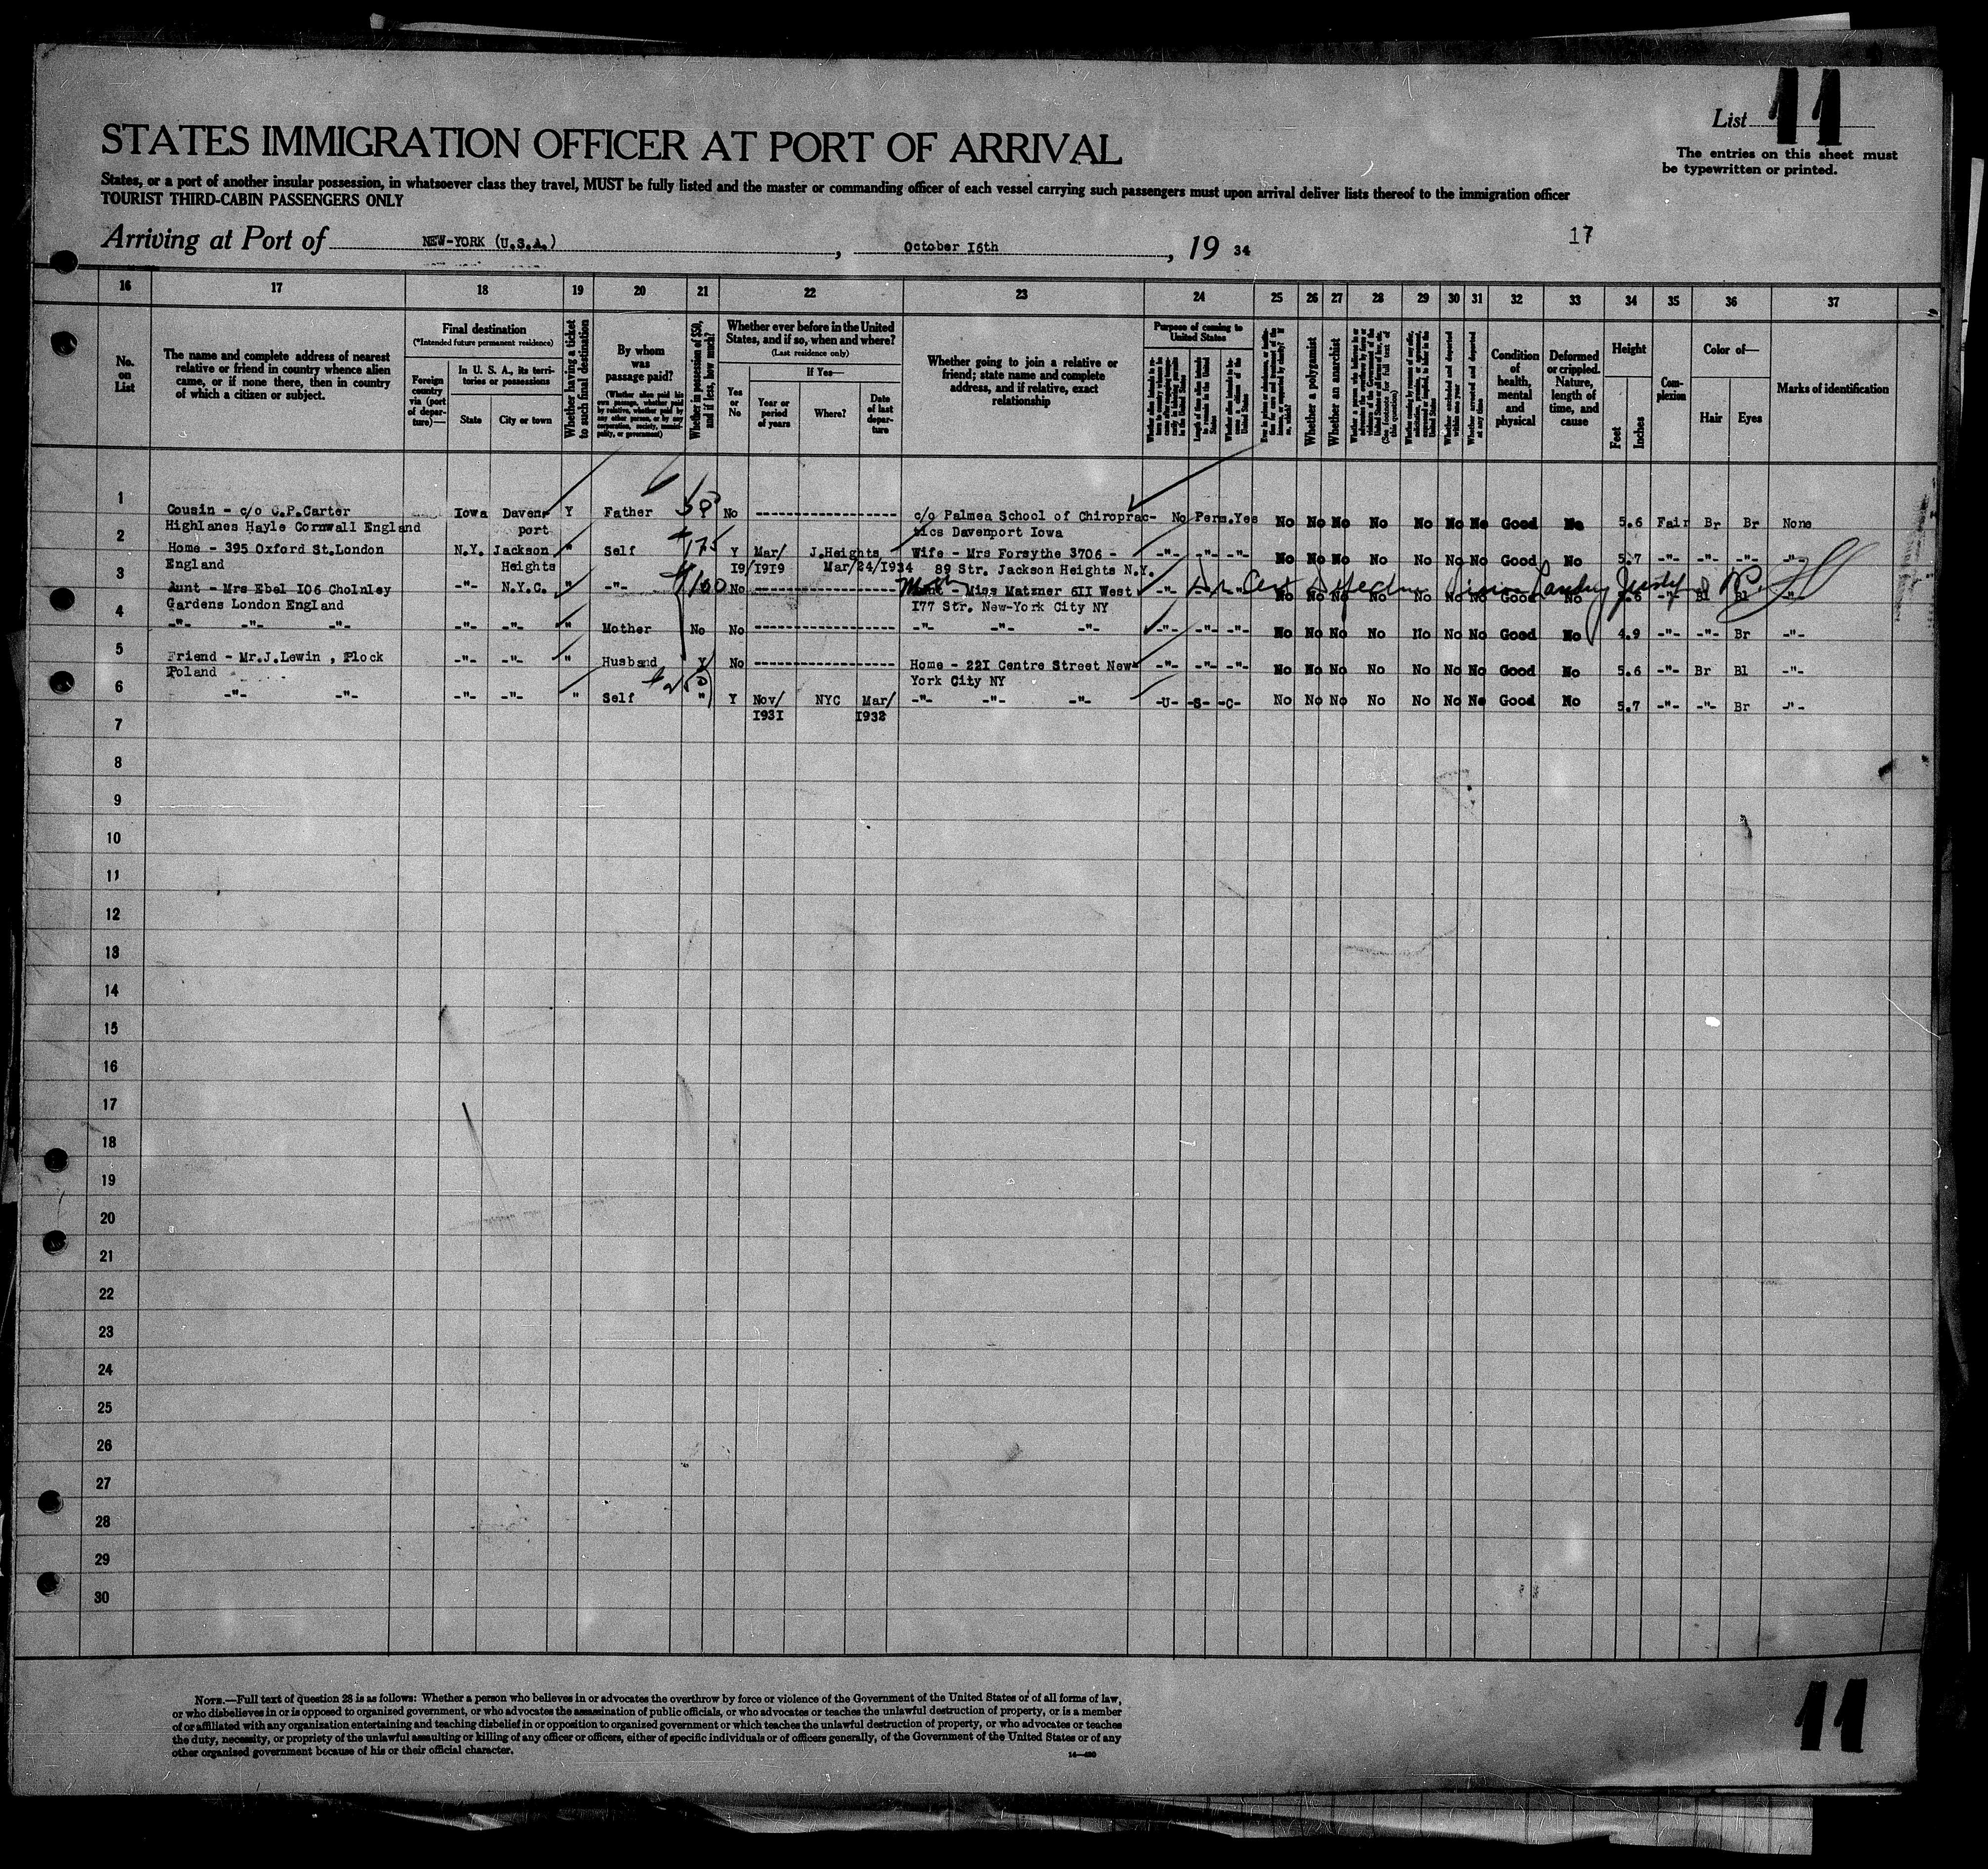 List 11
STATES IMMIGRATION OFFICER AT PORT OF ARRIVAL
The entries on this sheet must
be typewritten or printed.
States, or a port of another insular possession, in whatsoever class they travel, MUST be fully listed and the master or commanding officer of each vessel carrying such passengers must upon arrival deliver lists thereof to the immigration officer
TOURIST THIRD-CABIN PASSENGERS ONLY
Arriving at Port of NEW-YORK (U.S.A.), October 16th, 19 34
17
16 17 18 19 20 21 22 23 24 25 26 27 28 29 30 31 32 33 34 35 36 37
No.
on
List
The name and complete address of nearest
relative or friend in country whence alien
came, or if none there, then in country
of which a citizen or subject.
Final destination
(*Intended future permanent residence)
Foreign
country
via (port
of depar-
ture)—
In U. S. A., its terri-
tories or possessions
State City or town
Whether having a ticket
to such final destination
By whom
was
passage paid?
(Whether alien paid his
own passage, whether paid
by relative, whether paid by
any other person, or by any
corporation, society, munici-
pality, or government)
Whether in possession of $50,
and if less, how much?
Whether ever before in the United
States, and if so, when and where?
(Last residence only)
Yes
or
No
If Yes—
Year or
period
of years
Where?
Date
of last
depar-
ture
Whether going to join a relative or
friend; state name and complete
address, and if relative, exact
relationship
Purpose of coming to
United States
Length of time alien intends
to remain in the United
States
Whether alien intends to be-
come a citizen of the
United States
Whether a polygamist
Whether an anarchist
Whether arrested and deported
at any time
Condition
of
health,
mental
and
physical
Deformed
or crippled.
Nature,
length of
time, and
cause
Height
Feet
Inches
Com-
plexion
Color of—
Hair Eyes
Marks of identification
1 Cousin - c/o C.P.Carter Iowa Daven- Y Father 50 Y No ---------------------- c/o Palmea School of Chiroprac- No Perm. Yes No No No No No No No Good No 5.6 Fair Br Br None
Highlanes Hayle Cornwall England port tics Davenport Iowa
2 Home - 395 Oxford St.London N.Y. Jackson " Self 175 Y Mar/ J.Heights Wife - Mrs Forsythe 3706 - -"- -"- -"- No No No No No No No Good No 5.7 -"- -"- -"- -"-
England Heights 19/1919 Mar/24/1934 89 Str. Jackson Heights N.Y.
3 Aunt - Mrs Ebel 106 Cholnley -"- N.Y.C. " -"- 100 No ---------------------- - Miss Matzner 611 West -"- -"- No No No No No No No Good No 5.6 -"- Bl Bl -"-
Gardens London England 177 Str. New-York City NY
4 -"- -"- -"- -"- -"- " Mother No No ---------------------- -"- -"- -"- -"- -"- -"- No No No No No No No Good No 4.9 -"- -"- Br -"-
5 Friend - Mr.J.Lewin , Plock -"- -"- " Husband Y No ---------------------- Home - 221 Centre Street New- -"- -"- -"- No No No No No No No Good No 5.6 -"- Br Bl -"-
Poland York City NY
6 -"- -"- -"- -"- " Self " Y Nov/ NYC Mar/ -"- -"- -"- -U- -S- -C- No No No No No No No Good No 5.7 -"- -"- Br -"-
1931 1932
7
8
9
10
11
12
13
14
15
16
17
18
19
20
21
22
23
24
25
26
27
28
29
30
NOTE.—Full text of question 28 is as follows: Whether a person who believes in or advocates the overthrow by force or violence of the Government of the United States or of all forms of law,
or who disbelieves in or is opposed to organized government, or who advocates the assassination of public officials, or who advocates or teaches the unlawful destruction of property, or is a member
of or affiliated with any organization entertaining and teaching disbelief in or opposition to organized government or which teaches the unlawful destruction of property, or who advocates or teaches
the duty, necessity, or propriety of the unlawful assaulting or killing of any officer or officers, either of specific individuals or of officers generally, of the Government of the United States or of any
other organized government because of his or their official character.
14—490
11